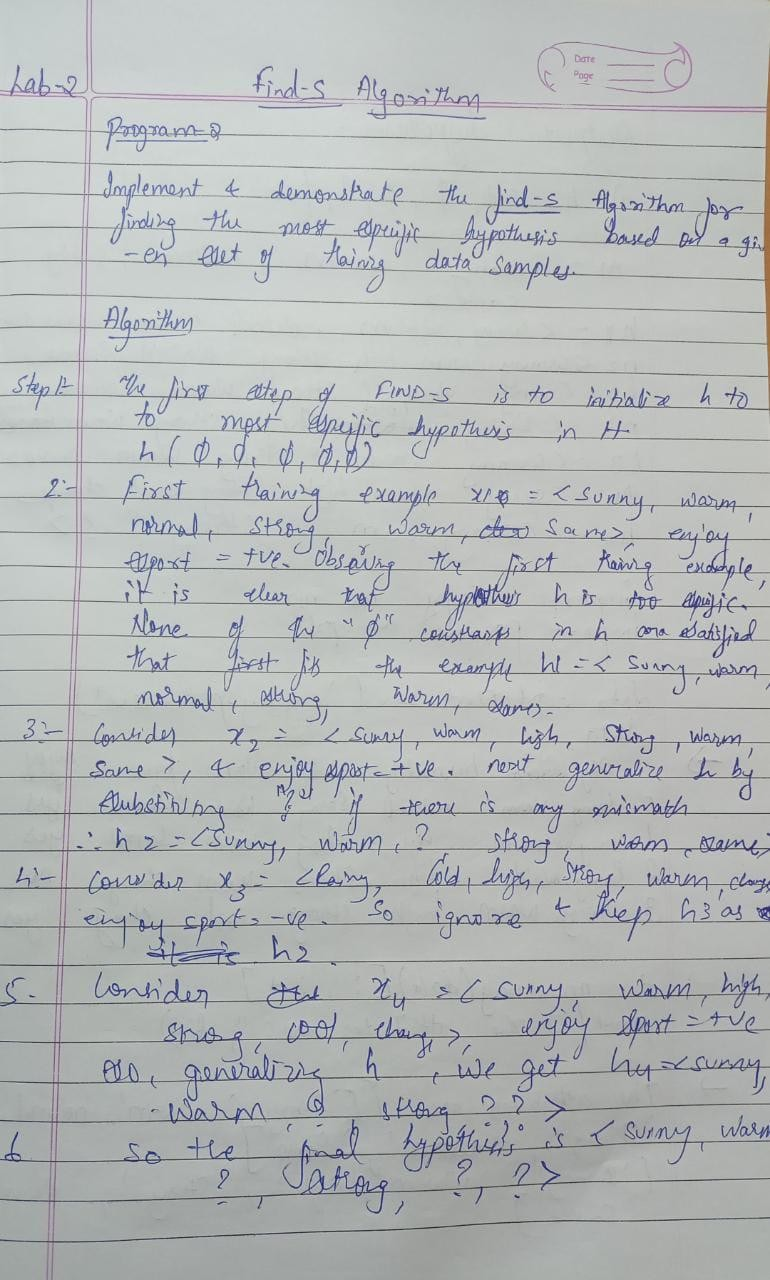 Date
Page
Lab-2
Find-S Algorithm
Program-2
Implement & demonstrate the find-s Algorithm for
finding the most specific hypothesis based on a giv
-en set of training data samples.
Algorithm
Step 1:- The first step of FIND-S is to initialize h to
to most specific hypothesis in H
h ( ϕ, ϕ, ϕ, ϕ, ϕ)
2:- First training example x1 = < Sunny, warm,
normal, strong, warm, same>, enjoy
sport = +ve. Observing the first training example,
it is clear that hypothesis h is too specific.
None of the "ϕ" constraints in h are satisfied
that first fits the example h1 = < Sunny, warm,
normal, strong, warm, same>.
3:- Consider x2 = < Sunny, warm, high, strong, warm,
same >, & enjoy sport = +ve. next generalize h by
substituting "?" if there is any mismath
∴ h2 = <Sunny, warm, ?, strong, warm, same>
4:- Consider x3 = <Rainy, Cold, high, strong, warm, change
enjoy sport = -ve. So ignore & keep h3 as
it is h2.
5. Consider x4 = < Sunny, warm, high,
strong, cool, change>, enjoy sport = +ve
generalizing h, we get h4 = <sunny,
warm, strong ? ? >
6 so the final hypothesis is < Sunny, warm
?, strong, ?, ?>